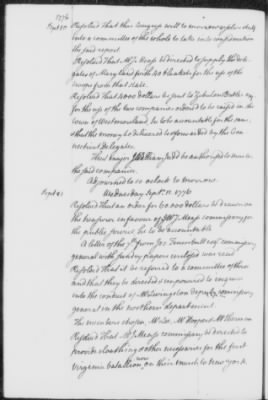 1776
Sept. 10 Resolved That this Congress will to morrow resolve itself
into a committee of the whole to take into consideration
the said report
Resolved That Mr J. Mease be directed to supply the dele-
gates of Maryland with 40 blankets for the use of the
troops from that state.
Resolved That 4000 dollars be sent to Zebulon Butler esqr
for the use of the two companies ordered to be raised in the
town of Westmoreland, he to be accountable for the same
& that the money be delivered to & forwarded by the Con
necticut delegates.
That Major William Judd be authorised to muster
the said companies.
Adjourned to 10 oClock to morrow.
Wednesday Sept. 11. 1776
Sept. 11
Resolved That an order for 60,000 dollars be drawn on
the treasurer in favour of J Mease commissary for
the public service he to be accountable
A letter of the 7 from Jos. Trumbull esqr commissary
general with sundry papers enclosed was read
Resolved That it be referred to a committee of three
and that they be directed & empowered to enquire
into the conduct of Mr Livingston deputy commissary
general in the northern department.
The members chosen
Resolved That Mr J. Mease commissary be directed to
provide cloathing & other necessaries for the first
Virginia batallion now on their march to New York.